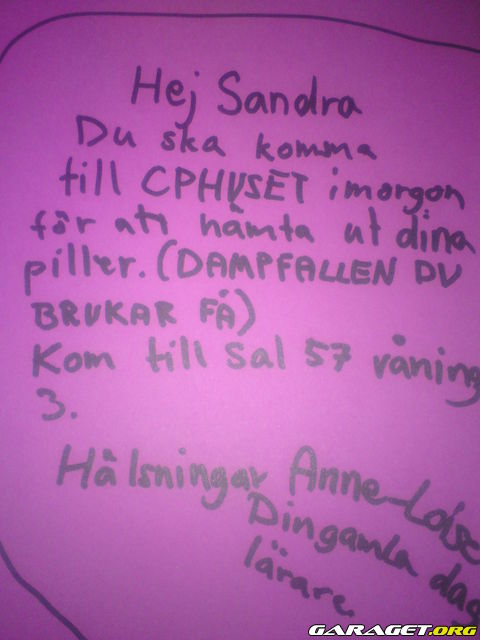 Hej Sandra
Du ska komma
till CPHUSET imorgon
för att hämta ut dina
piller. (DAMPFALLEN DU
BRUKAR FÅ)
Kom till Sal 57 våning
3.
Hälsningar Anne-Loise
Din gamla dag
lärare.
GARAGET.ORG